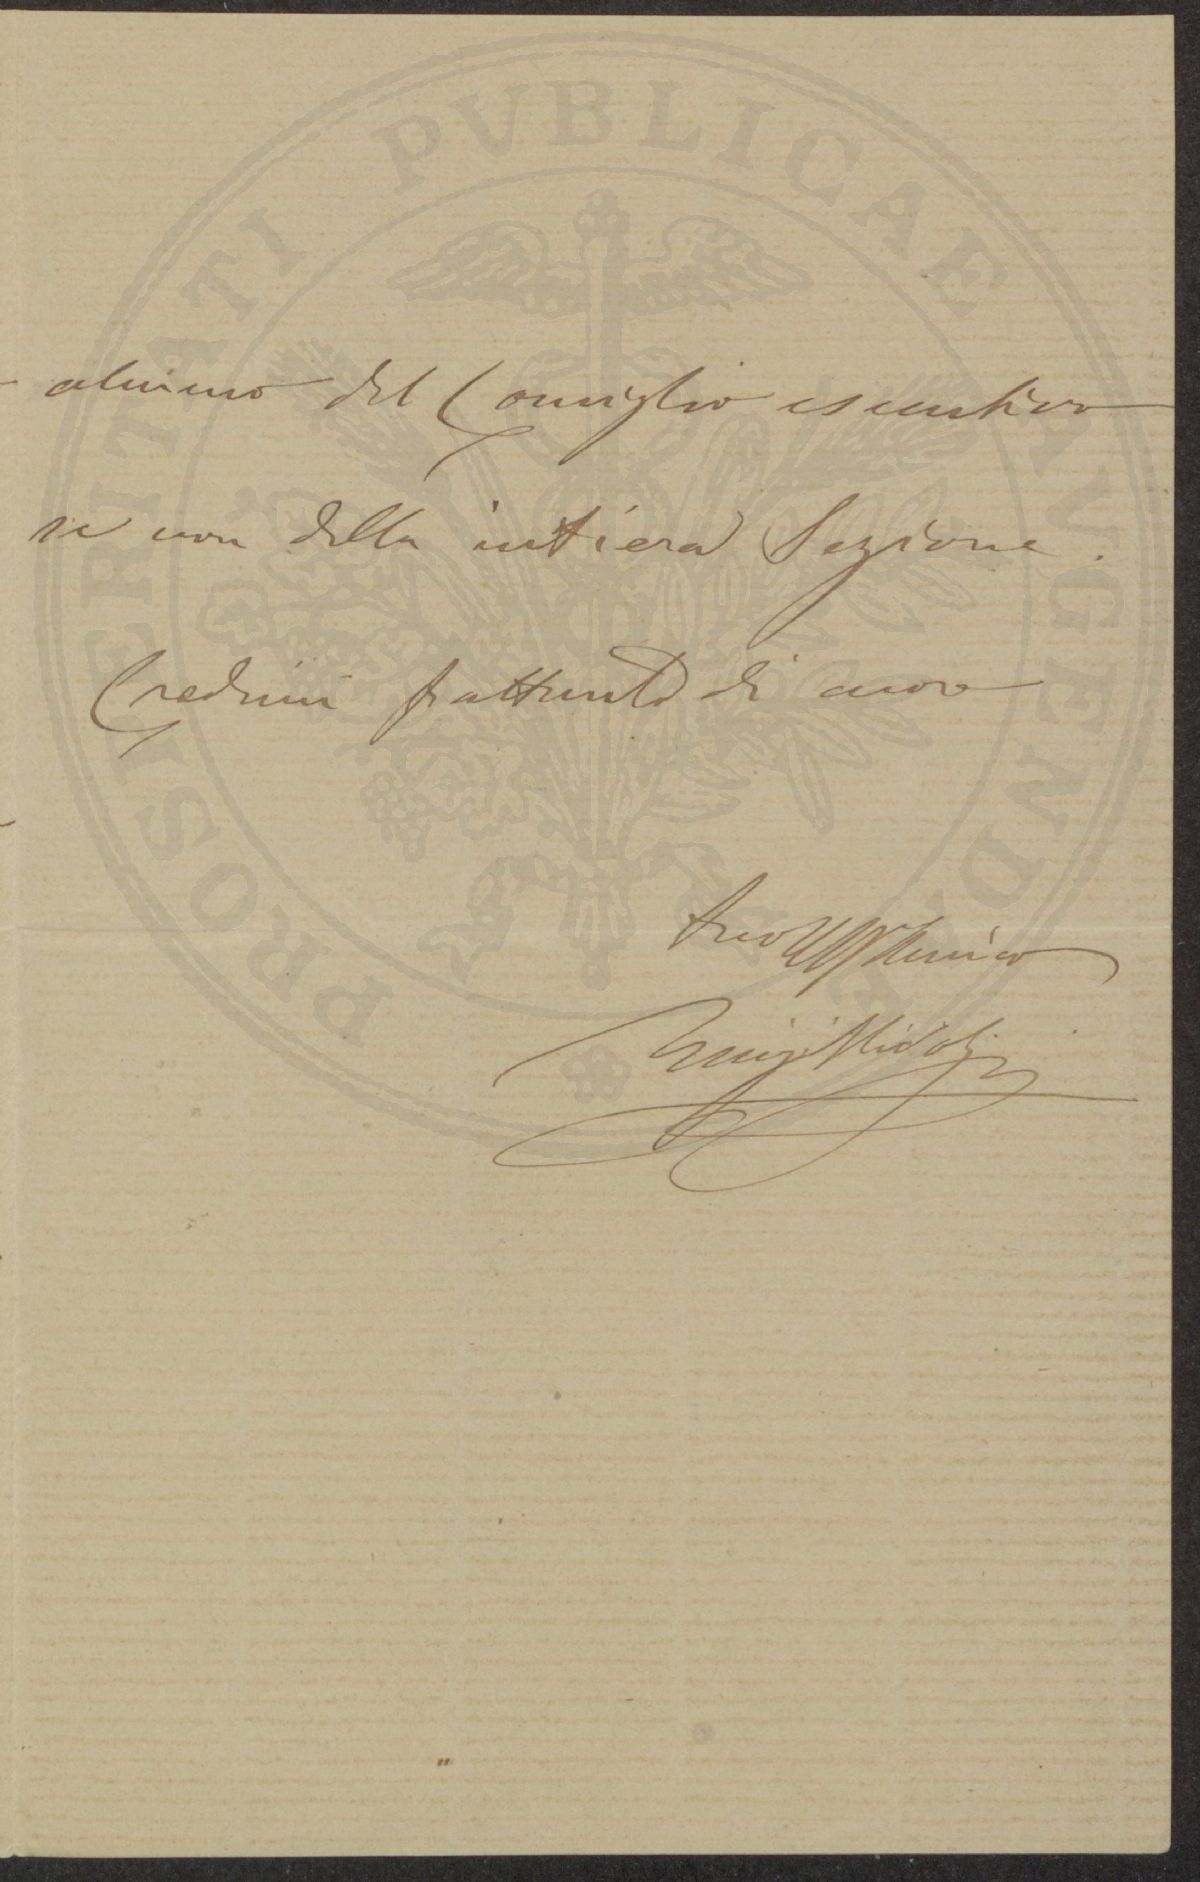 almeno del Consiglio esecutivo
se non della intiera Sezione.
Credimi frattanto di cuore
tuo Amico
Luigi
PROSPERITATI PUBLICAE AUGENDAE